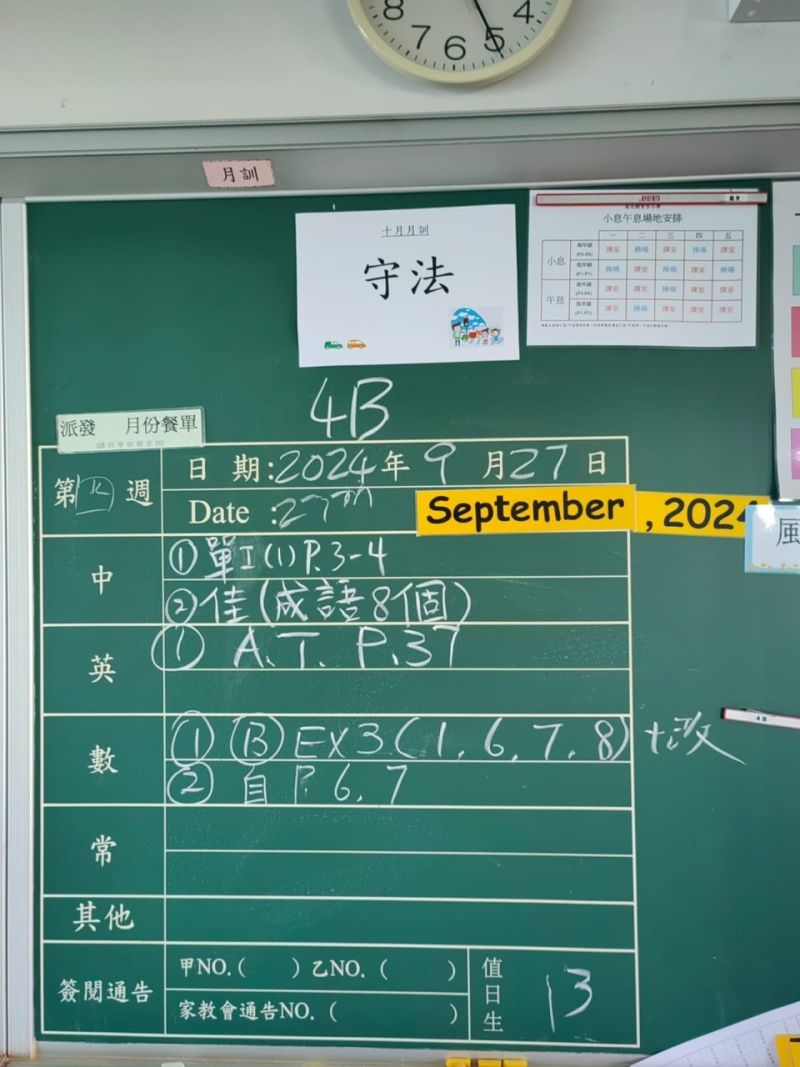 8 7 6 5 4
月訓
十月月訓
守法
小息午息場地安排
一 二 三 四 五
小息
高年級 課室 操場 課室 操場 課室
低年級 操場 課室 操場 課室 操場
午息
高年級 課室 課室 操場 課室 課室
低年級 課室 操場 課室 課室 課室
4B
派發 月份餐單
第四週
日 期:2024年9月27日
Date :27th September , 2024
風
中
①單工(1)P.3-4
②佳(成語8個)
英
① A.T. P.37
數
① Ⓑ EX3(1, 6, 7, 8)+改
② 自 P.6, 7
4B
常
其他
簽閱通告
甲NO.( )乙NO.( )
家教會通告NO.( )
值日生 13